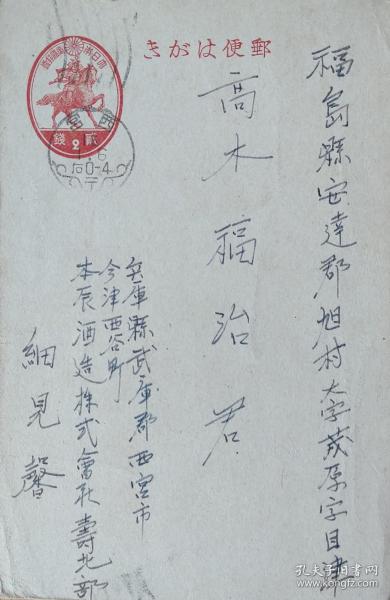 郵便はがき
福島縣安達郡旭村大字茂原字日
高木福治君
兵庫縣武庫郡西宮市
今津西谷町
本辰酒造株式會社壽北部
細見馨
大日本帝國郵便
貳2錢
西宮
后0-4
孔夫子旧书网